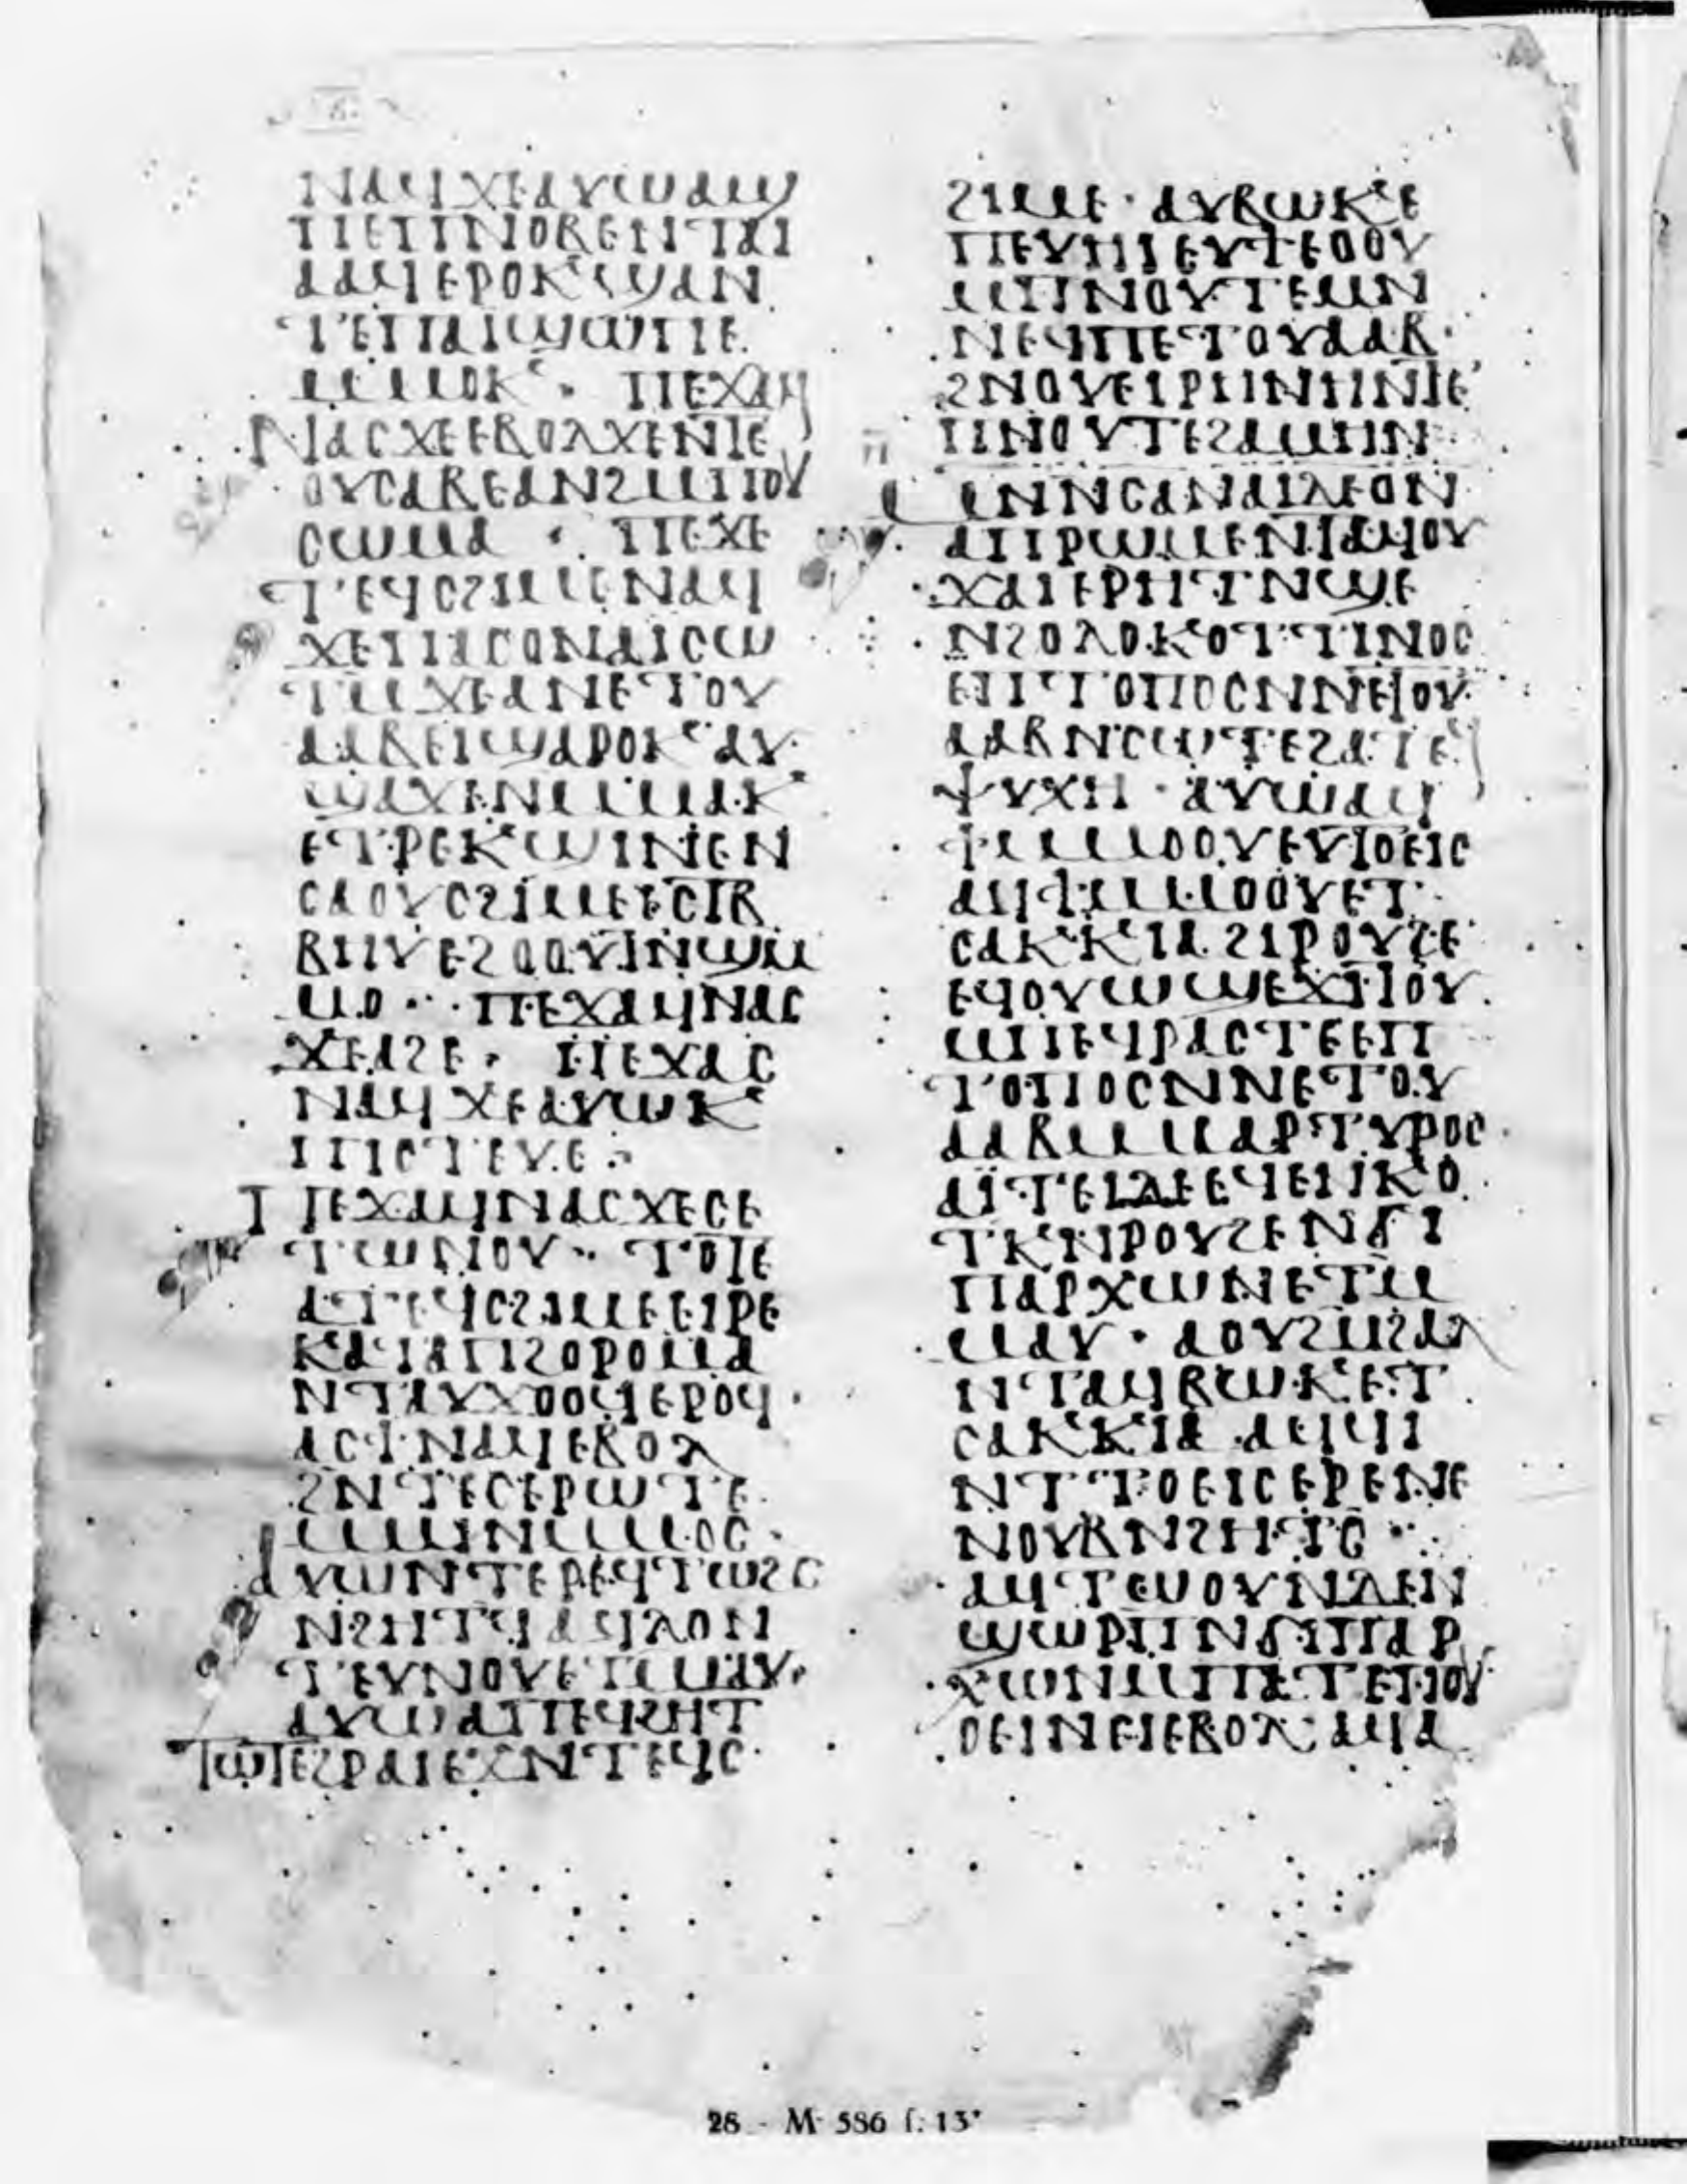 ⲛⲁϥϫⲉⲁⲩⲱⲁϣ
ⲡⲉⲡⲛⲟⲃⲉⲛⲧⲁⲓ
ⲁⲁϥⲉⲣⲟⲕϣⲁⲛ
ⲧⲉⲡⲁⲓϣⲱⲡⲉ
ⲙⲙⲟⲕ · ⲡⲉϫⲁϥ
ⲛⲁⲥϫⲉⲉⲃⲟⲗϫⲉⲛⲓⲉ
ⲟⲩⲥⲁⲃⲉⲁⲛϩⲙⲡⲟⲩ
ⲥⲱⲙⲁ · ⲡⲉϫⲉ
ⲧⲉϥⲥϩⲓⲙⲉⲛⲁϥ
ϫⲉⲡⲁⲥⲟⲛⲁⲓⲥⲱ
ⲧⲙϫⲉⲁⲛⲉⲧⲟⲩ
ⲁⲁⲃⲉⲓϣⲁⲣⲟⲕⲁⲩ
ϣⲁϫⲉⲛⲙⲙⲁⲕ
ⲉⲧⲣⲉⲕϣⲓⲛⲉⲛ
ⲥⲁⲟⲩⲥϩⲓⲙⲉⲉⲥⲧⲃ
ⲃⲏⲩⲉϩⲟⲩⲛϣⲙ
ⲙⲟ · ⲡⲉϫⲁϥⲛⲁⲥ
ϫⲉⲁϩⲉ · ⲡⲉϫⲁⲥ
ⲛⲁϥϫⲉⲁⲩⲱⲕ
ⲡⲓⲥⲧⲉⲩⲉ
ⲡⲉϫⲁϥⲛⲁⲥϫⲉⲥⲉ
ⲧⲱⲛⲟⲩ · ⲧⲟⲧⲉ
ⲁⲧⲉϥⲥϩⲓⲙⲉⲉⲓⲣⲉ
ⲕⲁⲧⲁⲡϩⲟⲣⲟⲙⲁ
ⲛⲧⲁⲩϫⲟⲟϥⲉⲣⲟϥ
ⲁⲥϯⲛⲁϥⲉⲃⲟⲗ
ϩⲛⲧⲉⲥⲉⲣⲱⲧⲉ
ⲙⲙⲓⲛⲙⲙⲟⲥ
ⲁⲩⲱⲛⲧⲉⲣⲉϥⲧⲱϩⲥ
ⲛϩⲏⲧϥⲁϥⲗⲟ ⲛ
ⲧⲉⲩⲛⲟⲩⲉⲧⲙⲙⲁⲩ
ⲁⲩⲱⲁⲡⲉϥϩⲏⲧ
ⲧⲱⲧⲉϩⲣⲁⲓⲉϫⲛⲧⲉϥⲥ
ϩⲓⲙⲉ · ⲁⲩⲃⲱⲕⲉ
ⲡⲉⲩⲏⲓⲉⲩϯⲉⲟⲟⲩ
ⲙⲡⲛⲟⲩⲧⲉⲙⲛ
ⲛⲉϥⲡⲉⲧⲟⲩⲁⲁⲃ
ϩⲛⲟⲩⲉⲓⲣⲏⲛⲏⲛⲧⲉ
ⲡⲛⲟⲩⲧⲉϩⲁⲙⲏⲛ
ⲙⲛⲛⲥⲁⲛⲁⲓⲇⲉⲟⲛ
ⲁⲡⲣⲱⲙⲉⲛⲧⲁϥⲟⲩ
ϫⲁⲓⲉⲣⲏⲧⲛϣⲉ
ⲛϩⲟⲗⲟⲕⲟⲧⲧⲓⲛⲟⲥ
ⲉⲡⲧⲟⲡⲟⲥⲛⲛⲉⲧⲟⲩ
ⲁⲁⲃⲛⲥⲱⲧⲉϩⲁⲧⲉϥ
ⲯⲩⲭⲏ · ⲁⲩⲱⲁϥ
ϯⲙⲙⲟⲟⲩⲉⲩⲧⲟⲉⲓⲥ
ⲁϥϯⲙⲙⲟⲟⲩⲉⲧ
ⲥⲁⲕⲕⲓⲁϩⲓⲣⲟⲩϩⲉ
ⲉϥⲟⲩⲱϣⲉϫⲓⲧⲟⲩ
ⲙⲡⲉϥⲣⲁⲥⲧⲉⲉⲡ
ⲧⲟⲡⲟⲥⲛⲛⲉⲧⲟⲩ
ⲁⲁⲃⲙⲙⲁⲣⲧⲩⲣⲟⲥ
ⲁⲓⲧⲉⲓⲇⲉⲉϥⲉⲛⲕⲟ
ⲧⲕⲛⲣⲟⲩϩⲉⲛϭⲓ
ⲡⲁⲣⲭⲱⲛⲉⲧⲙ
ⲙⲁⲩ · ⲁⲟⲩϩⲙϩⲁⲗ
ⲛⲧⲁϥⲃⲱⲕⲉⲧ
ⲥⲁⲕⲕⲓⲁⲁϥϥⲓ
ⲛⲧⲧⲟⲉⲓⲥⲉⲣⲉⲡⲉ
ⲛⲟⲩⲃⲛϩⲏⲧⲥ
ⲁϥⲧⲱⲟⲩⲛⲇⲉⲛ
ϣⲱⲣⲡⲛϭⲓⲡⲁⲣ
ⲭⲱⲛⲙⲡⲉⲧⲉⲡⲟⲩ
ⲟⲉⲓⲛⲉⲓⲉⲃⲟⲗ ⲁϥⲁ
28 - M 586 f. 13ᵛ